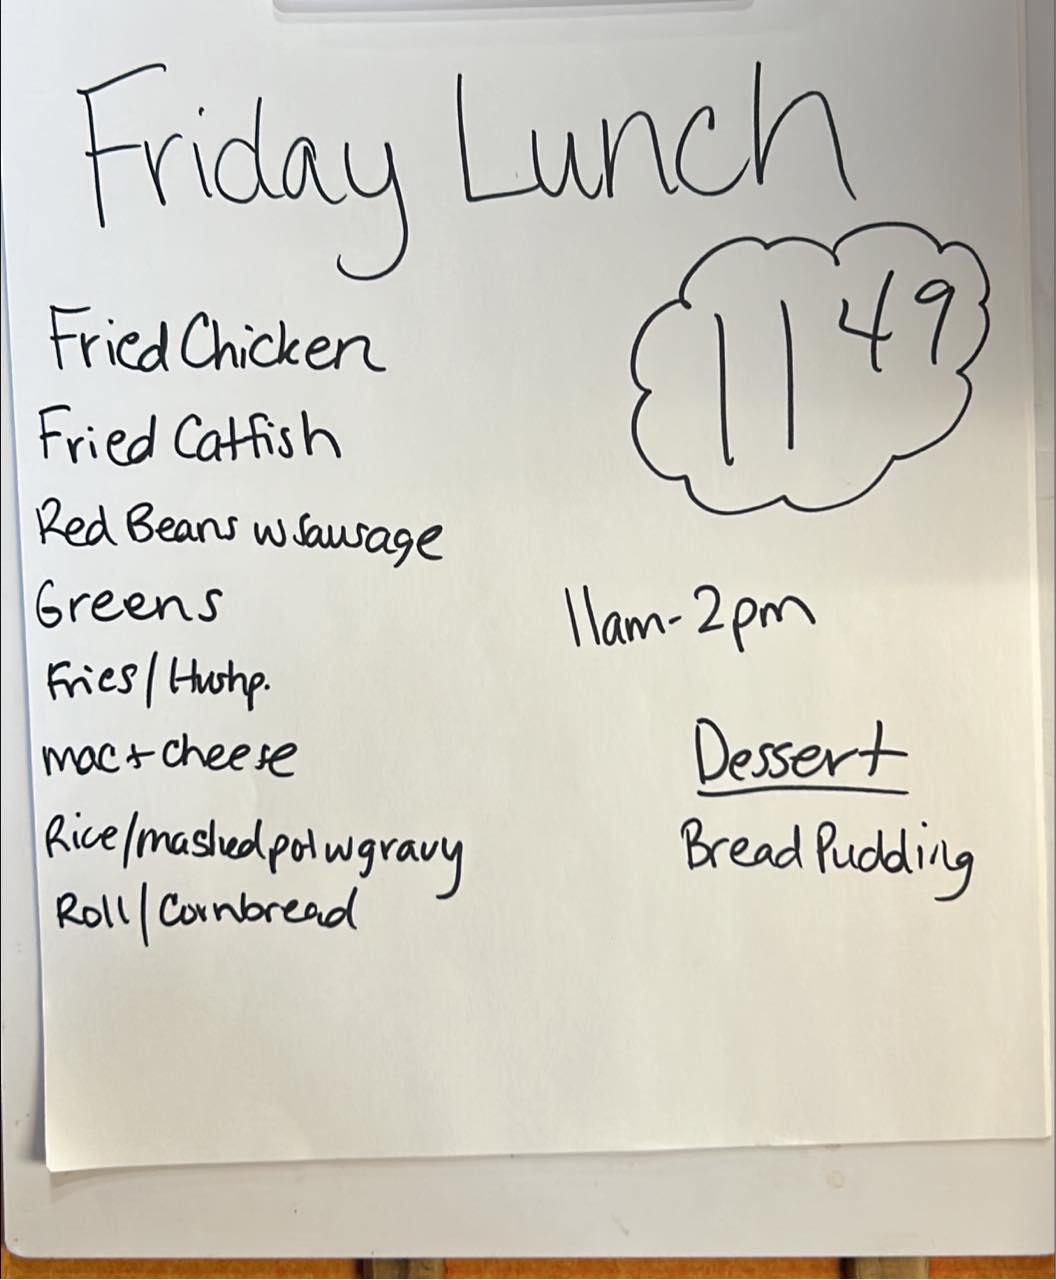 Friday Lunch
11 49
Fried Chicken
Fried Catfish
Red Beans w Sausage
Greens
Fries/Hushp.
mac + cheese
Rice/mashed pot w gravy
Roll/Cornbread
11am-2pm
Dessert
Bread Pudding